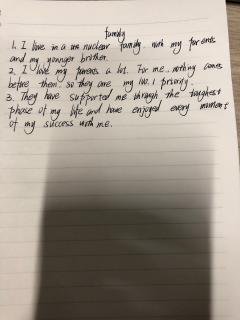 family
1. I live in a nuclear family with my parents
and my younger brother.
2. I love my parents a lot. For me nothing comes
before them. so they are my no. 1 priority.
3. They have supported me through the toughest
phase of my life and have enjoyed every moment
of my success with me.